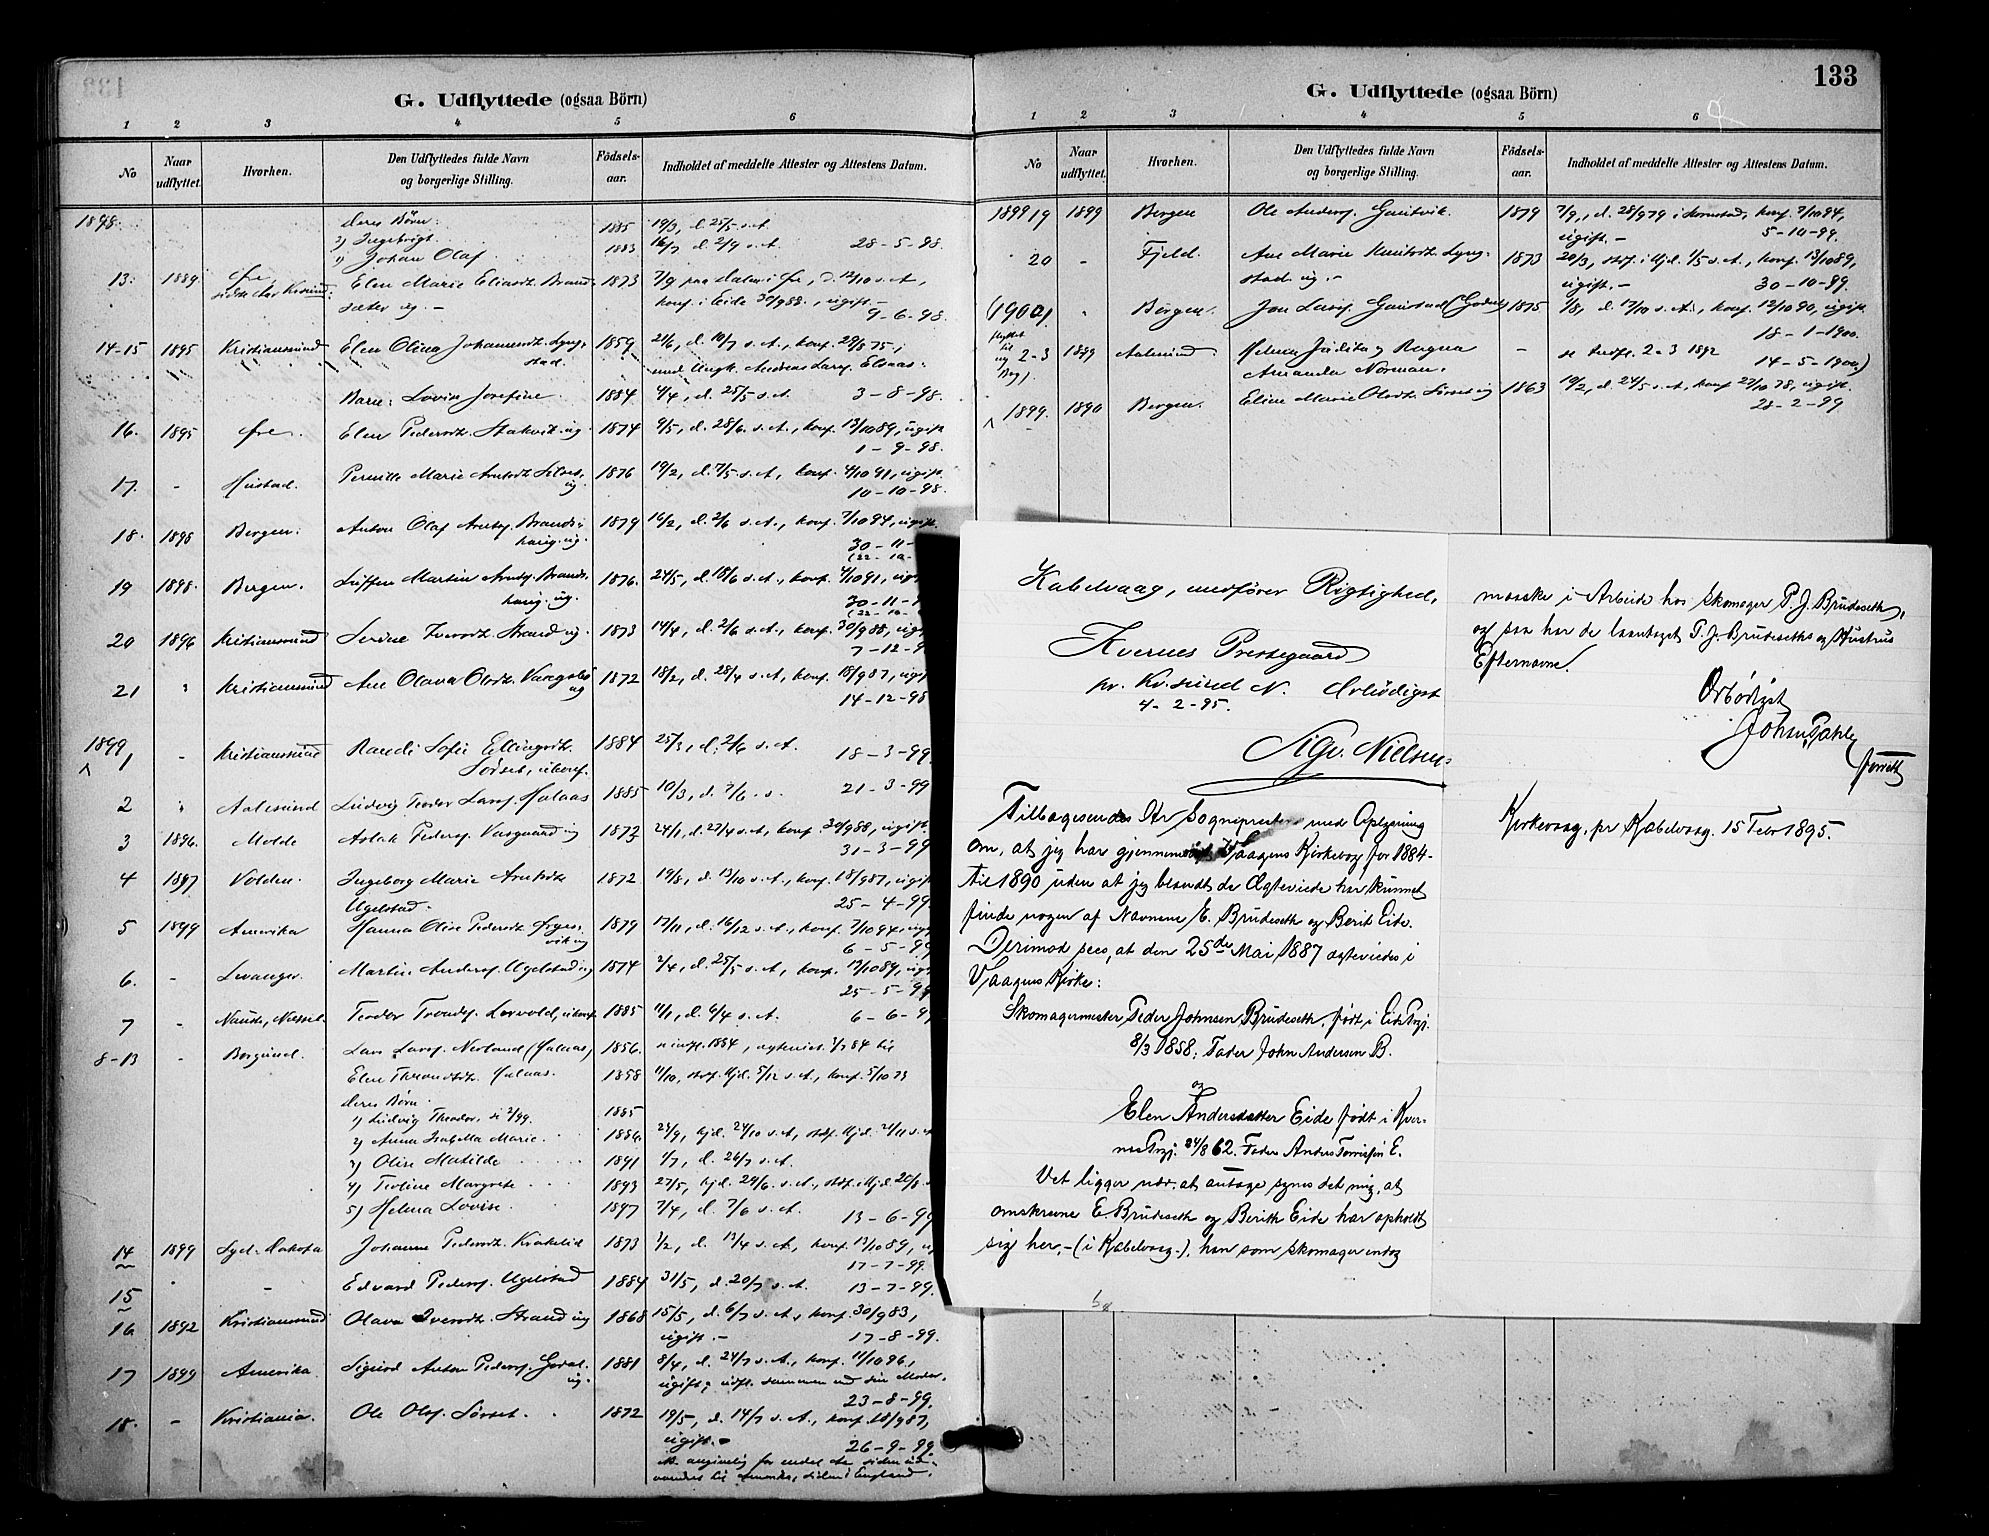 133
G. Udflyttede (ogsaa Börn)
1 2 3 4 5 6
No Naar udflyttet. Hvorhen. Den Udflyttedes fulde Navn og borgerlige Stilling. Födsels-aar. Indholdet af meddelte Attester og Attestens Datum.
1898. deres Børn:
2) Ingebrigt. 1885 19/3, d. 25/5 s. A.
1) Johan Olaf 1883 16/7 d. 2/9 s. A. 28-5-98.
13. 1889. Øre Elen Marie Eliasdt. Brand- 1873 7/9 paa Dalen i Øre, d. 12/10 s. A.,
sæter ug. - konf. i Eide 30/9 88., ugift. -
9-6-98.
14-15 1895 Kristianssund Elen Olina Johannesdt. Lyng- 1859 21/6, d. 10/7 s. A., konf. 29/8 75,
stad. med Ungk. Andreas Larsf. Elsaas.
Barn: Lovise Josefine. 1884 4/4, d. 25/5 s. A. 3-8-98.
16. 1895 Øre. Elen Pedersdt. Stokvik ug. 1874 9/5, d. 28/6. s. A., konf. 13/10 89, ugift
1-9-98.
17. - Hustad. Pernille Marie Arntsdt. 1876 19/2, d. 7/5 s. A., konf. 4/10 91, ugift.
ug. 10-10-98.
18. 1898 Bergen. Anton Olaf Arntsf. Brands- 1879 16/2, d. 2/6 s. A., konf. 7/10 94, ugift.
haug. ug. 30-11-
19 1898. Bergen. Steffen Martin Arntsf. Brands- 1876. 24/5, d. 18/6 s. A., konf. 4/10 91,
haug. ug. 30-11-
20 1896 Kristianssund Serine Iversdt. Strand ug. 1873 14/4, d. 2/6 s. A., konf. 30/9 88,
7-12-
21 " Kristianssund Ane Olava Olsdt. 1872 18/2, d. 28/4 s. A., konf. 18/9 87,
ug 14-12-98
1899 1 - Kristianssund Randi Sofie Ellingsdt. 1884 25/3, d. 2/6 s. A. 18-3-99
Sørset, ukonf.
2 " Aalesund Ludvig Teodor Larsf. Halaas 1885 10/3, d. 7/6. s. 21-3-99
3 1896. Molde Aslak Pedersf. Vasgaard ug 1872 24/1, d. 27/4 s. A., konf. 30/9 88, ugift.
31-3-99
4 1897 Volden. Ingeborg Marie Arntsdt. 1872 19/8, d. 13/10 s. A., konf. 18/9 87, ugift
Ugelstad. 25-4-99.
5 1899 Amerika Hanna Olise Pedersdt. 1879 17/11, d. 16/12 s. A., konf. 7/10 94
6-5-99
6. - Levanger Martin Andersf. Ugelstad ug 1874 2/4, d. 25/5 s. A., konf. 13/10 89,
25-5-99
7 - Teodor Trondsf. Lervold, ukonf. 1885 11/1, d. 6/4 s. A. 6-6-9
8-13 - Borgund. Lars Larsf. Nerland (Halaas) 1856. indfl. 1884
Elen Throndsdt. Halaas. 1858 11/10, d. 5/12 s. A., konf. 5/10 73
deres Børn:
1) Ludvig Theodor, se 2/99. 1885
2) Anna Isabella Marie. 1886. 25/9, hjd. 24/10 s. A.,
3) Olise Matilde 1891 1/7, d. 26/7 s. A.
4) Teoline Margrete 1893 27/5, hjd. 24/6. s. A.,
5) Helena Lovise. 1897 7/4, d. 7/6 s. A. 13-6-99
14 1899 Syd-Dakota Johanne Pedersdt. Kirkelid 1873 1/2, d. 13/4 s. A., konf. 13/10 89,
17-7-99.
15 - Edvard Pedersf. Ugelstad 1884 31/5, d. 20/7 s. A. 13-7-99.
16 1892 Kristianssund Olava Iversdt. Strand ug 1868 15/5, d. 6/7 s. A., konf. 30/9 83,
ugift. - 17-8-99.
17 1899 Amerika. Sigurd Anton Pedersf. 1881 8/4, d. 24/7 s. A., konf. 11/10 96,
ug. ugift; udfl. sammen med sin Moder.
23-8-99.
18. - Kristiania. Ole Olsf. Sørset. 1872 19/5, d. 14/7 s. A., konf. 18/9 87,
ugift. - 26-9-99.
angivelig for endel Aar siden ud-
vandret til Amerika, siden i England.
G. Udflyttede (ogsaa Börn)
133
1 2 3 4 5 6
No Naar udflyttet. Hvorhen. Den Udflyttedes fulde Navn og borgerlige Stilling. Födsels-aar. Indholdet af meddelte Attester og Attestens Datum.
1899 19 1899 Bergen Ole Andersf. Gautvik. 1879 7/9, d. 28/9 79 i Kornstad, konf. 7/10 94,
ugift. - 5-10-99.
20 - Fjeld. Ane Marie Knutsdt. Lyng- 1873 20/3, d. 1/5 s. A., konf. 13/10 89,
stad ug. - ugift. - 30-10-99.
(1900 1 " Bergen. Jon Larsf. Gaustad 1875 1/8, d. 17/10 s. A., konf. 12/10 90, ugift
18-1-1900.
2-3 1889 Aalesund. Helma Judita og Ragna - se Indfl. 2-3 1892
Amanda Norman. 14-5-1900.)
1899. 1890 Bergen. Eline Marie Olsdt. Sørset ug 1863 19/2, d. 24/5 s. A., konf. 27/10 78, ugift.
28-2-99
Kabelvaag, medfører Rigtighed.
Kvernes Prestegaard
pr. Kr.sund N. Ærbødigst
4-2-95.
Sigv. Nielsen
Tilbagesendes Hr Sognepresten med Oplysning
om, at jeg har gjennemseet Vaagens Kirkebog for 1884-
til 1890 uden at jeg blandt de Ægteviede har kunnet
finde nogen af Navnene E. Brudeseth og Berit Eide.
Derimod sees, at den 25de Mai 1887 ægteviedes i
Vaagens Kirke:
Skomagermester Peder Johnsen Brudeseth, født i Eide Prgj.
8/3 1858; Fader John Andersen B.
og
Elen Andersdatter Eide født i Kver-
nes Prgj. 24/8 62. Fader Anders E.
Det ligger nær at antage synes det mig, at
omskrevne E. Brudeseth og Berith Eide har opholdt
sig her, - (i Kabelvaag), han som skomager endog
maaske i Arbeide hos skomager P. J. Brudeseth,
og saa har de laantaget P. J. Brudeseths og Hustrus
Efternavne.
Ærbødigst
John Dahle
Kirkevaag, pr Kabelvaag. 15 Febr 1895.